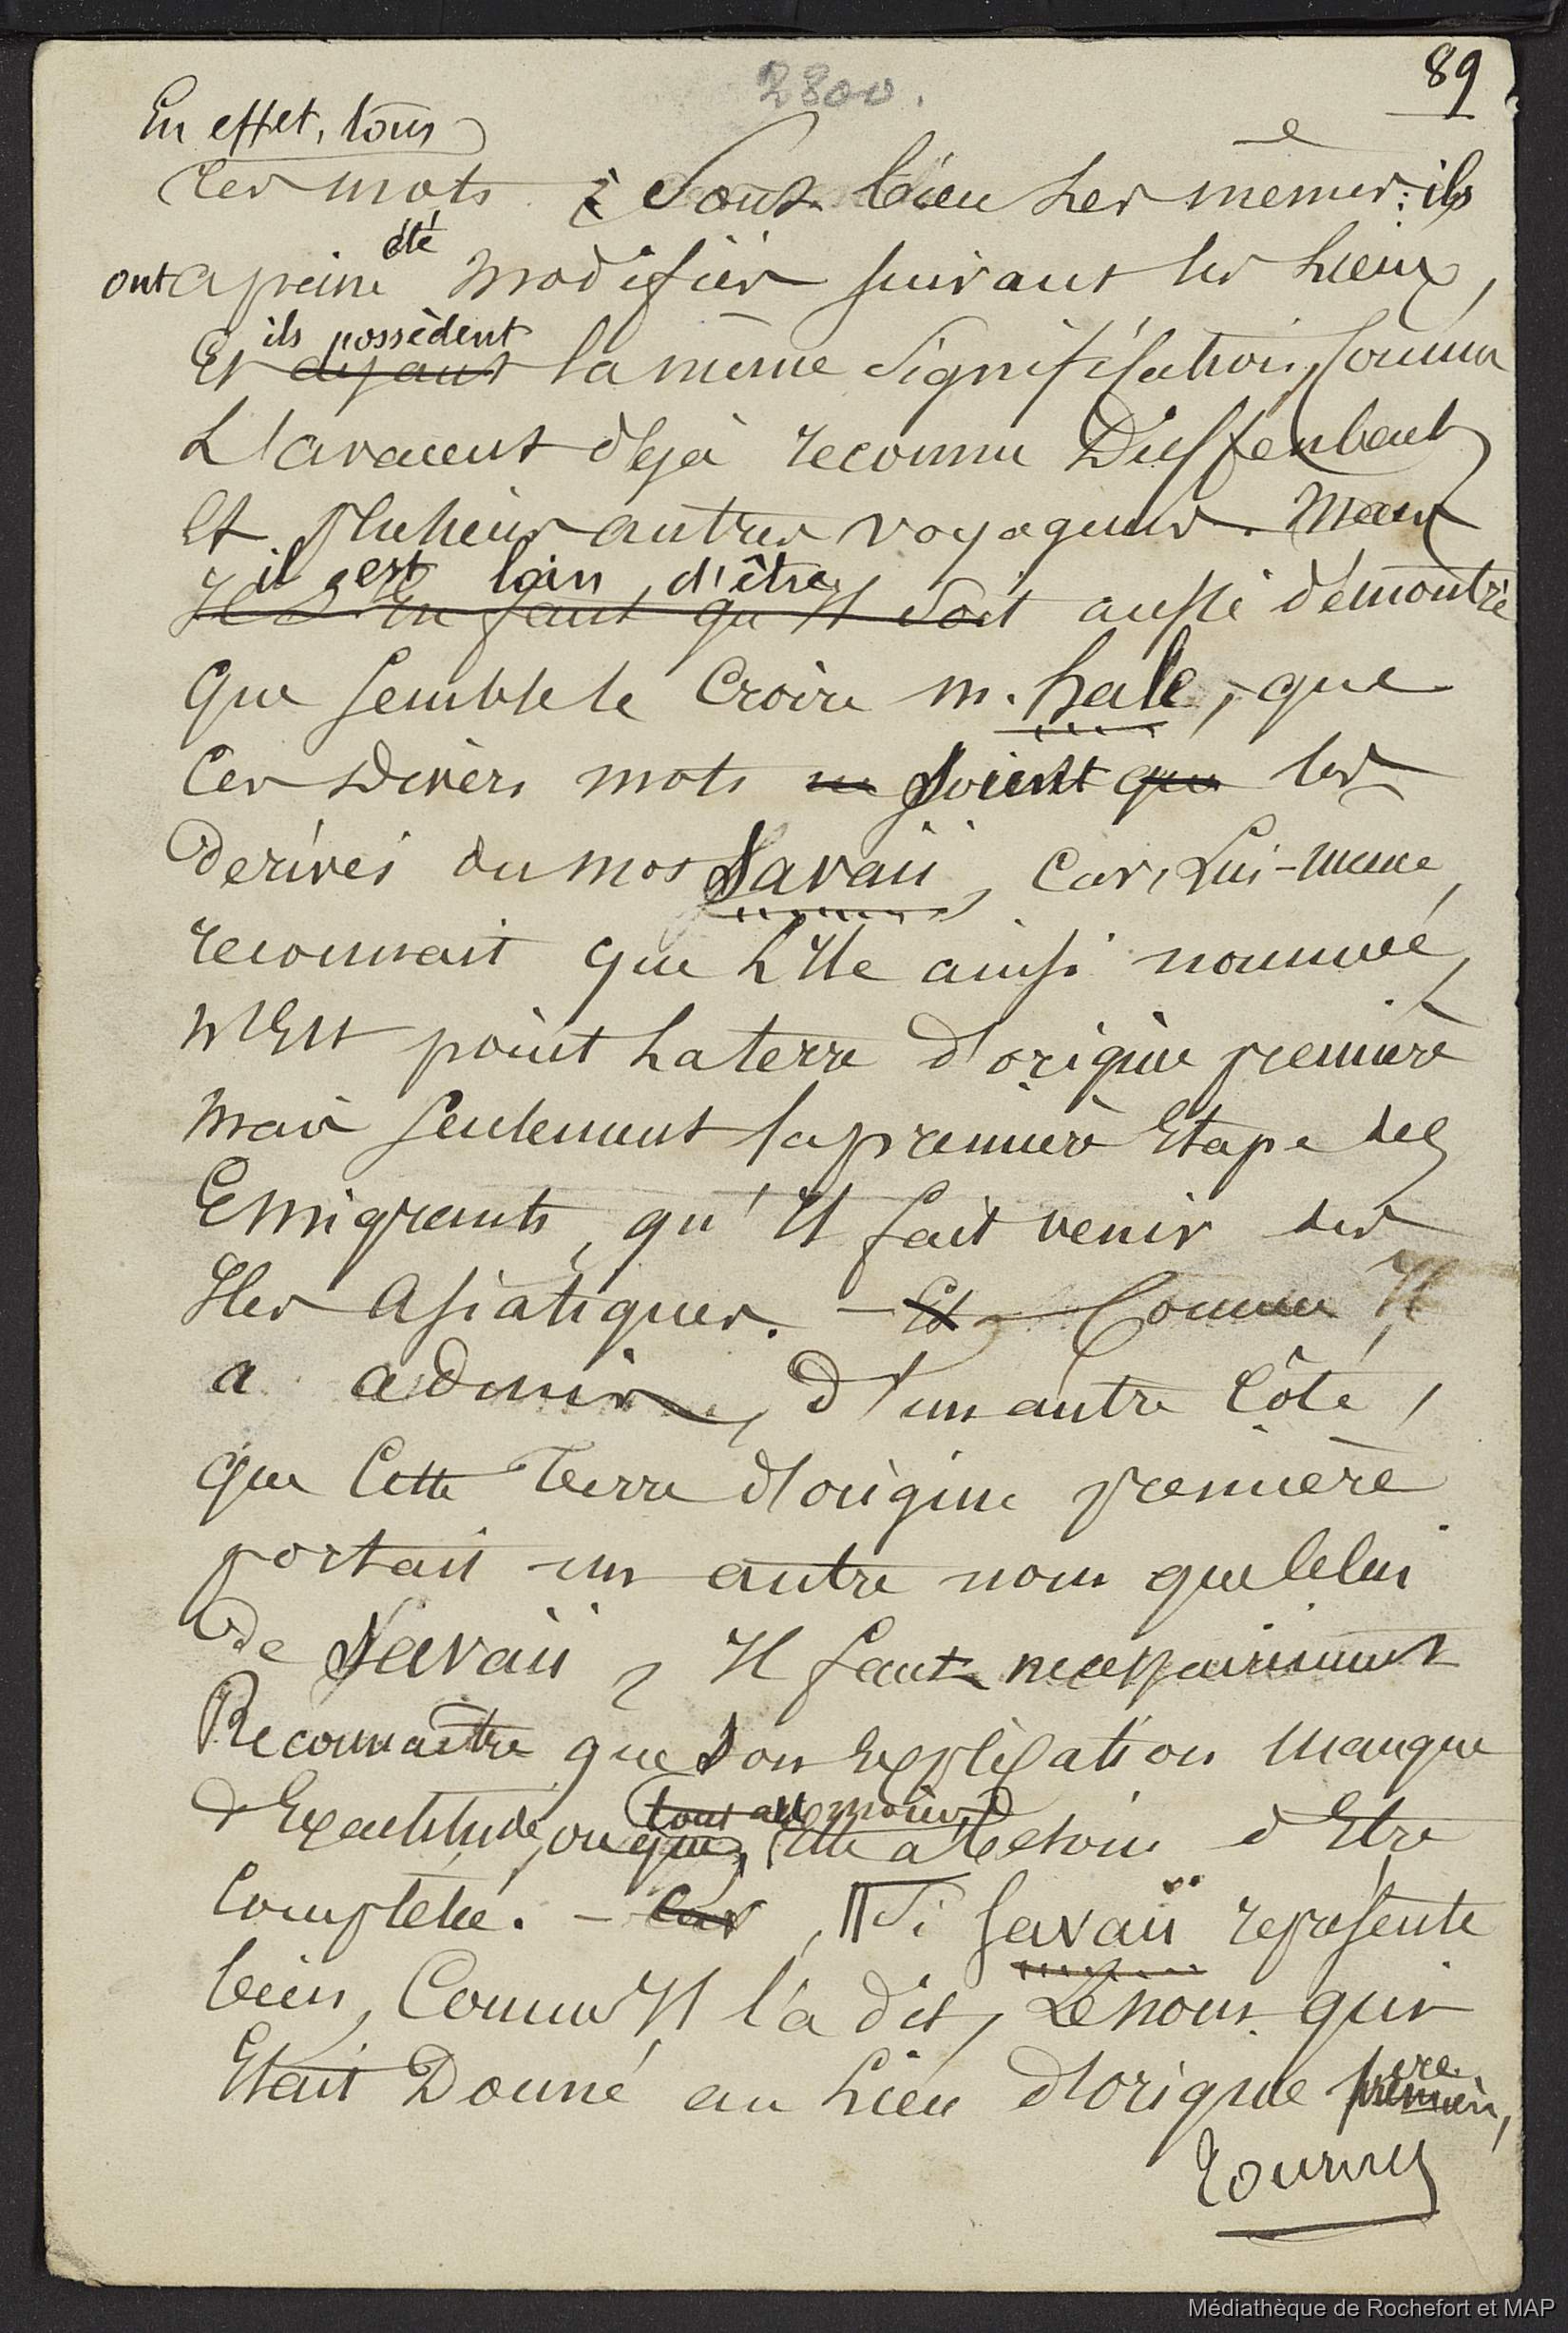 2800.
89
En effet, tous
ces mots sont bien les mêmes : ils
ont à peine été modifiés suivant les lieux,
Et ayant ils possèdent la même signification, comme
L'avaient déjà reconnu Dieffenbach
Et plusieurs autres voyageurs. Mais
il est loin d'être
Il s'en faut qu'Il soit aussi démontré
que semble le Croire m. hale, que
Ces Divers mots ne soient que les
Derivés du mot Savaii, Car, Lui-même,
reconnait que L'Ile ainsi nommée,
N'Est point La terre d'origine première
mais seulement la première Etape des
Emigrants, qu'Il fait venir des
Iles Asiatiques. - Et Comme Il
a admis, D'un autre Côté,
que Cette Terre d'origine première
portait un autre nom que Celui
De Savaii, Il faut necessairement
Reconnaître que son Explication manque
d'Exactitude, ou que, tout au moins, Elle a besoin d'Etre
Complétée. - Car, Si Savaii représente
bien, Comme Il l'a dit, Le nom qui
Etait Donné au Lieu d'origine première,
Tournez
Médiathèque de Rochefort et MAP